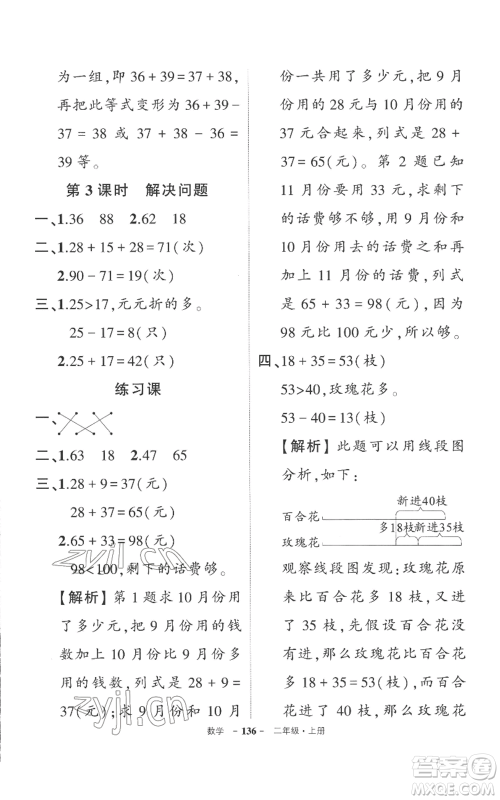 为一组,即 36+39=37+38,
再把此等式变形为 36+39-
37=38 或 37+38-36=
39 等。
第 3 课时 解决问题
一、1.36 88 2.62 18
二、1.28+15+28=71(次)
2.90-71=19(下)
三、1.25>17,元元折的多。
25-17=8(只)
2.25+17=42(只)
练习课
一、
二、1.63 18 2.47 65
三、1.28+9=37(元)
28+37=65(元)
2.65+33=98(元)
98<100,剩下的话费够。
【解析】第 1 题求 10 月份用
了多少元,把 9 月份用的钱
数加上 10 月份比 9 月份多
用的钱数,列式是 28+9=
37(元);求 9 月份和 10 月
份一共用了多少元,把 9 月
份的 28 元与 10 月份的
37 元合起来,列式是 28+
37=65(元)。第 2 题已知
11 月份的话费,求剩下
的话费够不够,用前两
个月一共用的话费
再加上 11 月份的话费,列式
是 65+33=98(元),因为
98 元比 100 元少,所以够。
四、18+35=53(枝)
53>40,玫瑰花多。
53-40=13(枝)
【解析】此题可以用线段图
分析,如下:
新进40枝
百合花
多18枝新进35枝
玫瑰花
观察线段图发现:玫瑰花原
来比百合花多 18 枝,又购
进了 35 枝,先假设百合花
没有增加,那么玫瑰花比
百合花多 18+35=53(枝),
而百合花实际上又购
进了 40 枝,那么玫瑰花多
数学 - 136 - 二年级·上册
zyjl.cn
zyjl.cn
答案圈